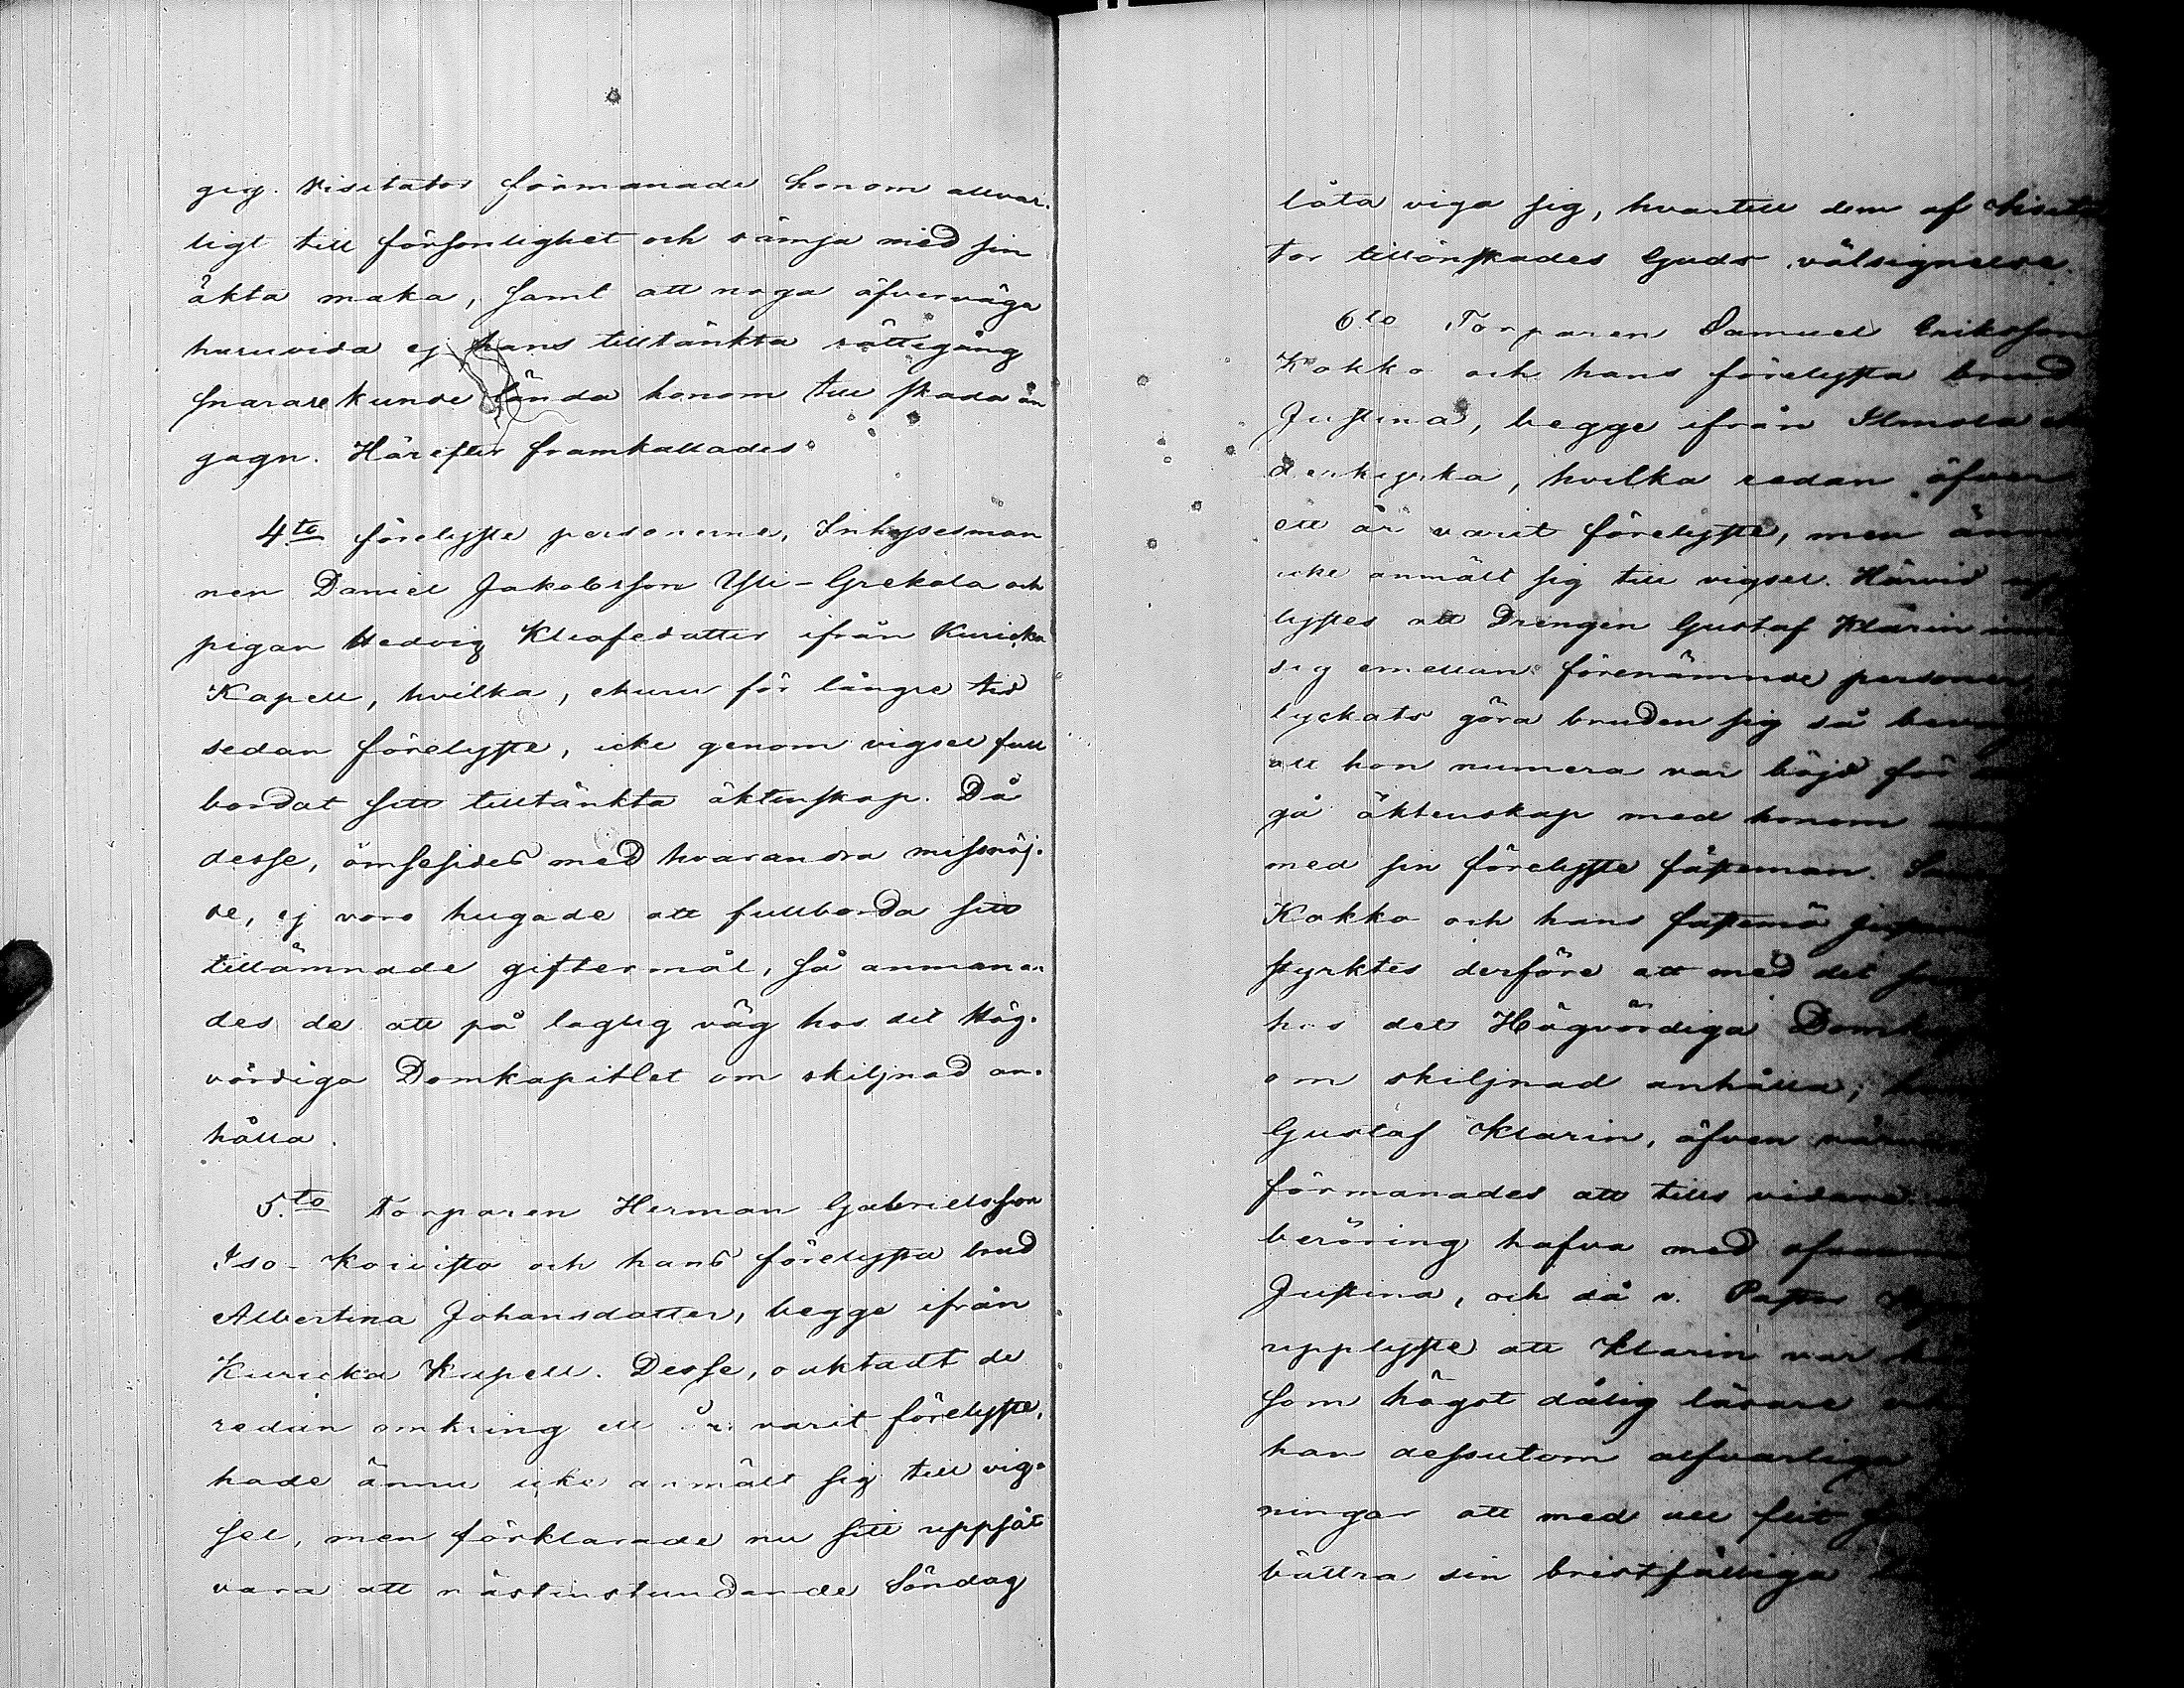 gig. Visitator förmanade honom allvar-
ligt till försonlighet och sämja med sin
äkta maka, samt att noga öfverväga
huruvida ej hans tilltänkta rättegång
snarare kunde lända honom till skada än
gagn. Härefter framkallades
4to förelyste personerne, Inhysesman
nen Daniel Jakobsson Yli-Grekola och
pigan Hedvig Kleofedatter ifrån Kuricka
Kapell, hvilka, ehuru för längre tid
sedan förelyste, icke genom vigsel full
bordat sitt tilltänkta äktenskap. Då
desse, ömsesides med hvarandra missnöj-
de, ej voro hugade att fullborda sitt
tillämnade giftermål, så anmana
des de att på laglig väg hos det Hög-
vördiga Domkapitlet om skiljnad an-
hålla.
5.to Torparen Herman Gabrielsson
Iso-Koivisto och hans förelysta brud
Albertina Johansdatter, begge ifrån
Kuricka Kapell. Desse, oaktadt de
redan omkring ett år varit förelyste,
hade ännu icke anmält sig till vig-
sel, men förklarade nu sitt uppsåt
vara att nästinstundande Söndag
låta viga sig, hvartill dem af Visita
tor tillönskades Guds välsignelse.
6to Torparen Samuel Eriksson
Kokko och hans förelysta brud
Justina, begge ifrån Ilmola
derkyrka, hvilka redan öfver
ett år varit förelyste, men
icke anmält sig till vigsel. Härvid
lystes att Drengen Gustaf Klarin
sig emellan förenämnde personer,
lyckats göra bruden sig så
att hon numera var böjd för
gå äktenskap med honom
med sin förelyste fästeman.
Kokko och hans fästemö
styrktes derföre att med det
hos det Högvördiga
om skiljnad anhålla;
Gustaf Klarin, äfven
förmanades att tills vidare
beröring hafva med
Justina, och då v. Pastor
upplyste att Klarin var
som högst dålig läsare
han dessutom alfvarliga
ningar att med all flit
bättra sin bristfälliga